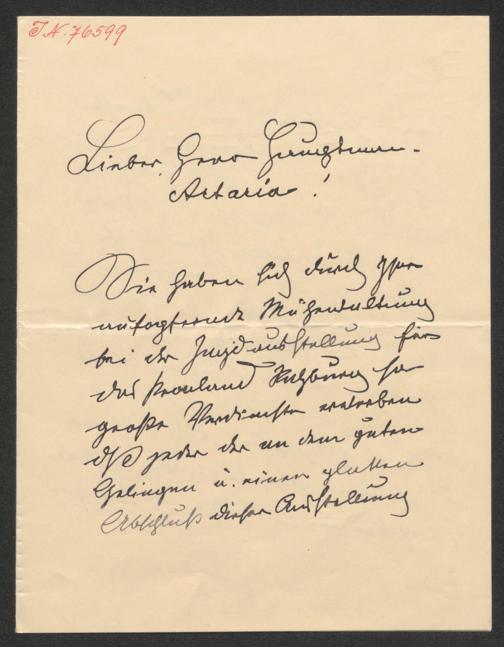 I.N. 76599
Lieber Herr Hauptmann
Artaria!
Sie haben sich durch Ihre
aufopfernde Mühewaltung
bei der Jagdausstellung für
das Kronland Salzburg so
große Verdienste erworben
dß jeder der an dem guten
Gelingen u. einen glatten
Abschluß dieser Ausstellung